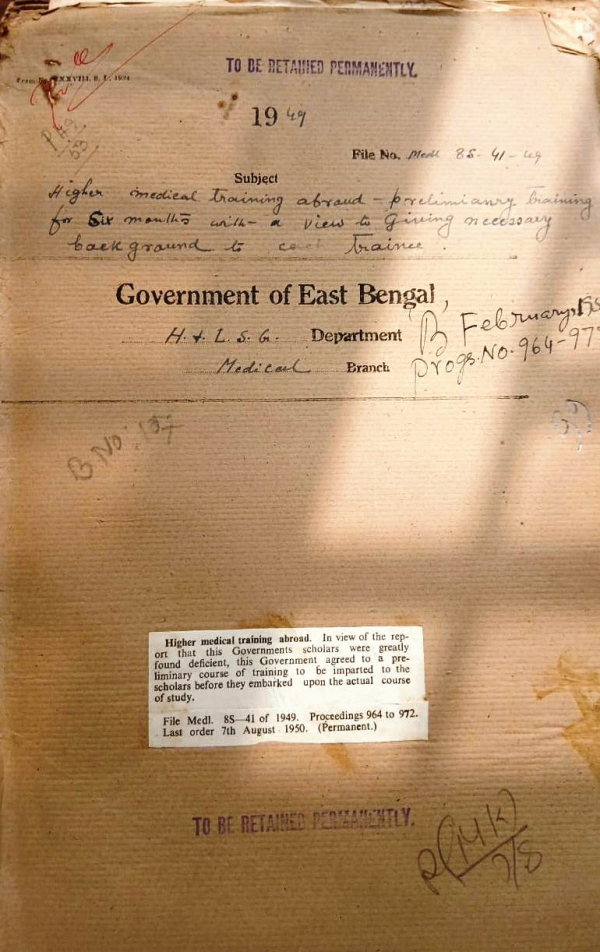 TO BE RETAINED PERMANENTLY.
1949
File No. Medl 8S-41-49
Subject
Higher medical training abroad - prelimianry training
for Six months with a view to Giving necessary
background to each trainee.
Government of East Bengal,
H. & L. S. G. Department
Medical Branch
B February
Progs. No. 964-97
B No. 157
Higher medical training abroad. In view of the rep-
ort that this Governments scholars were greatly
found deficient, this Government agreed to a pre-
liminary course of training to be imparted to the
scholars before they embarked upon the actual course
of study.
File Medl. 8S—41 of 1949. Proceedings 964 to 972.
Last order 7th August 1950. (Permanent.)
TO BE RETAINED PERMANENTLY.
P(MK)
7/8